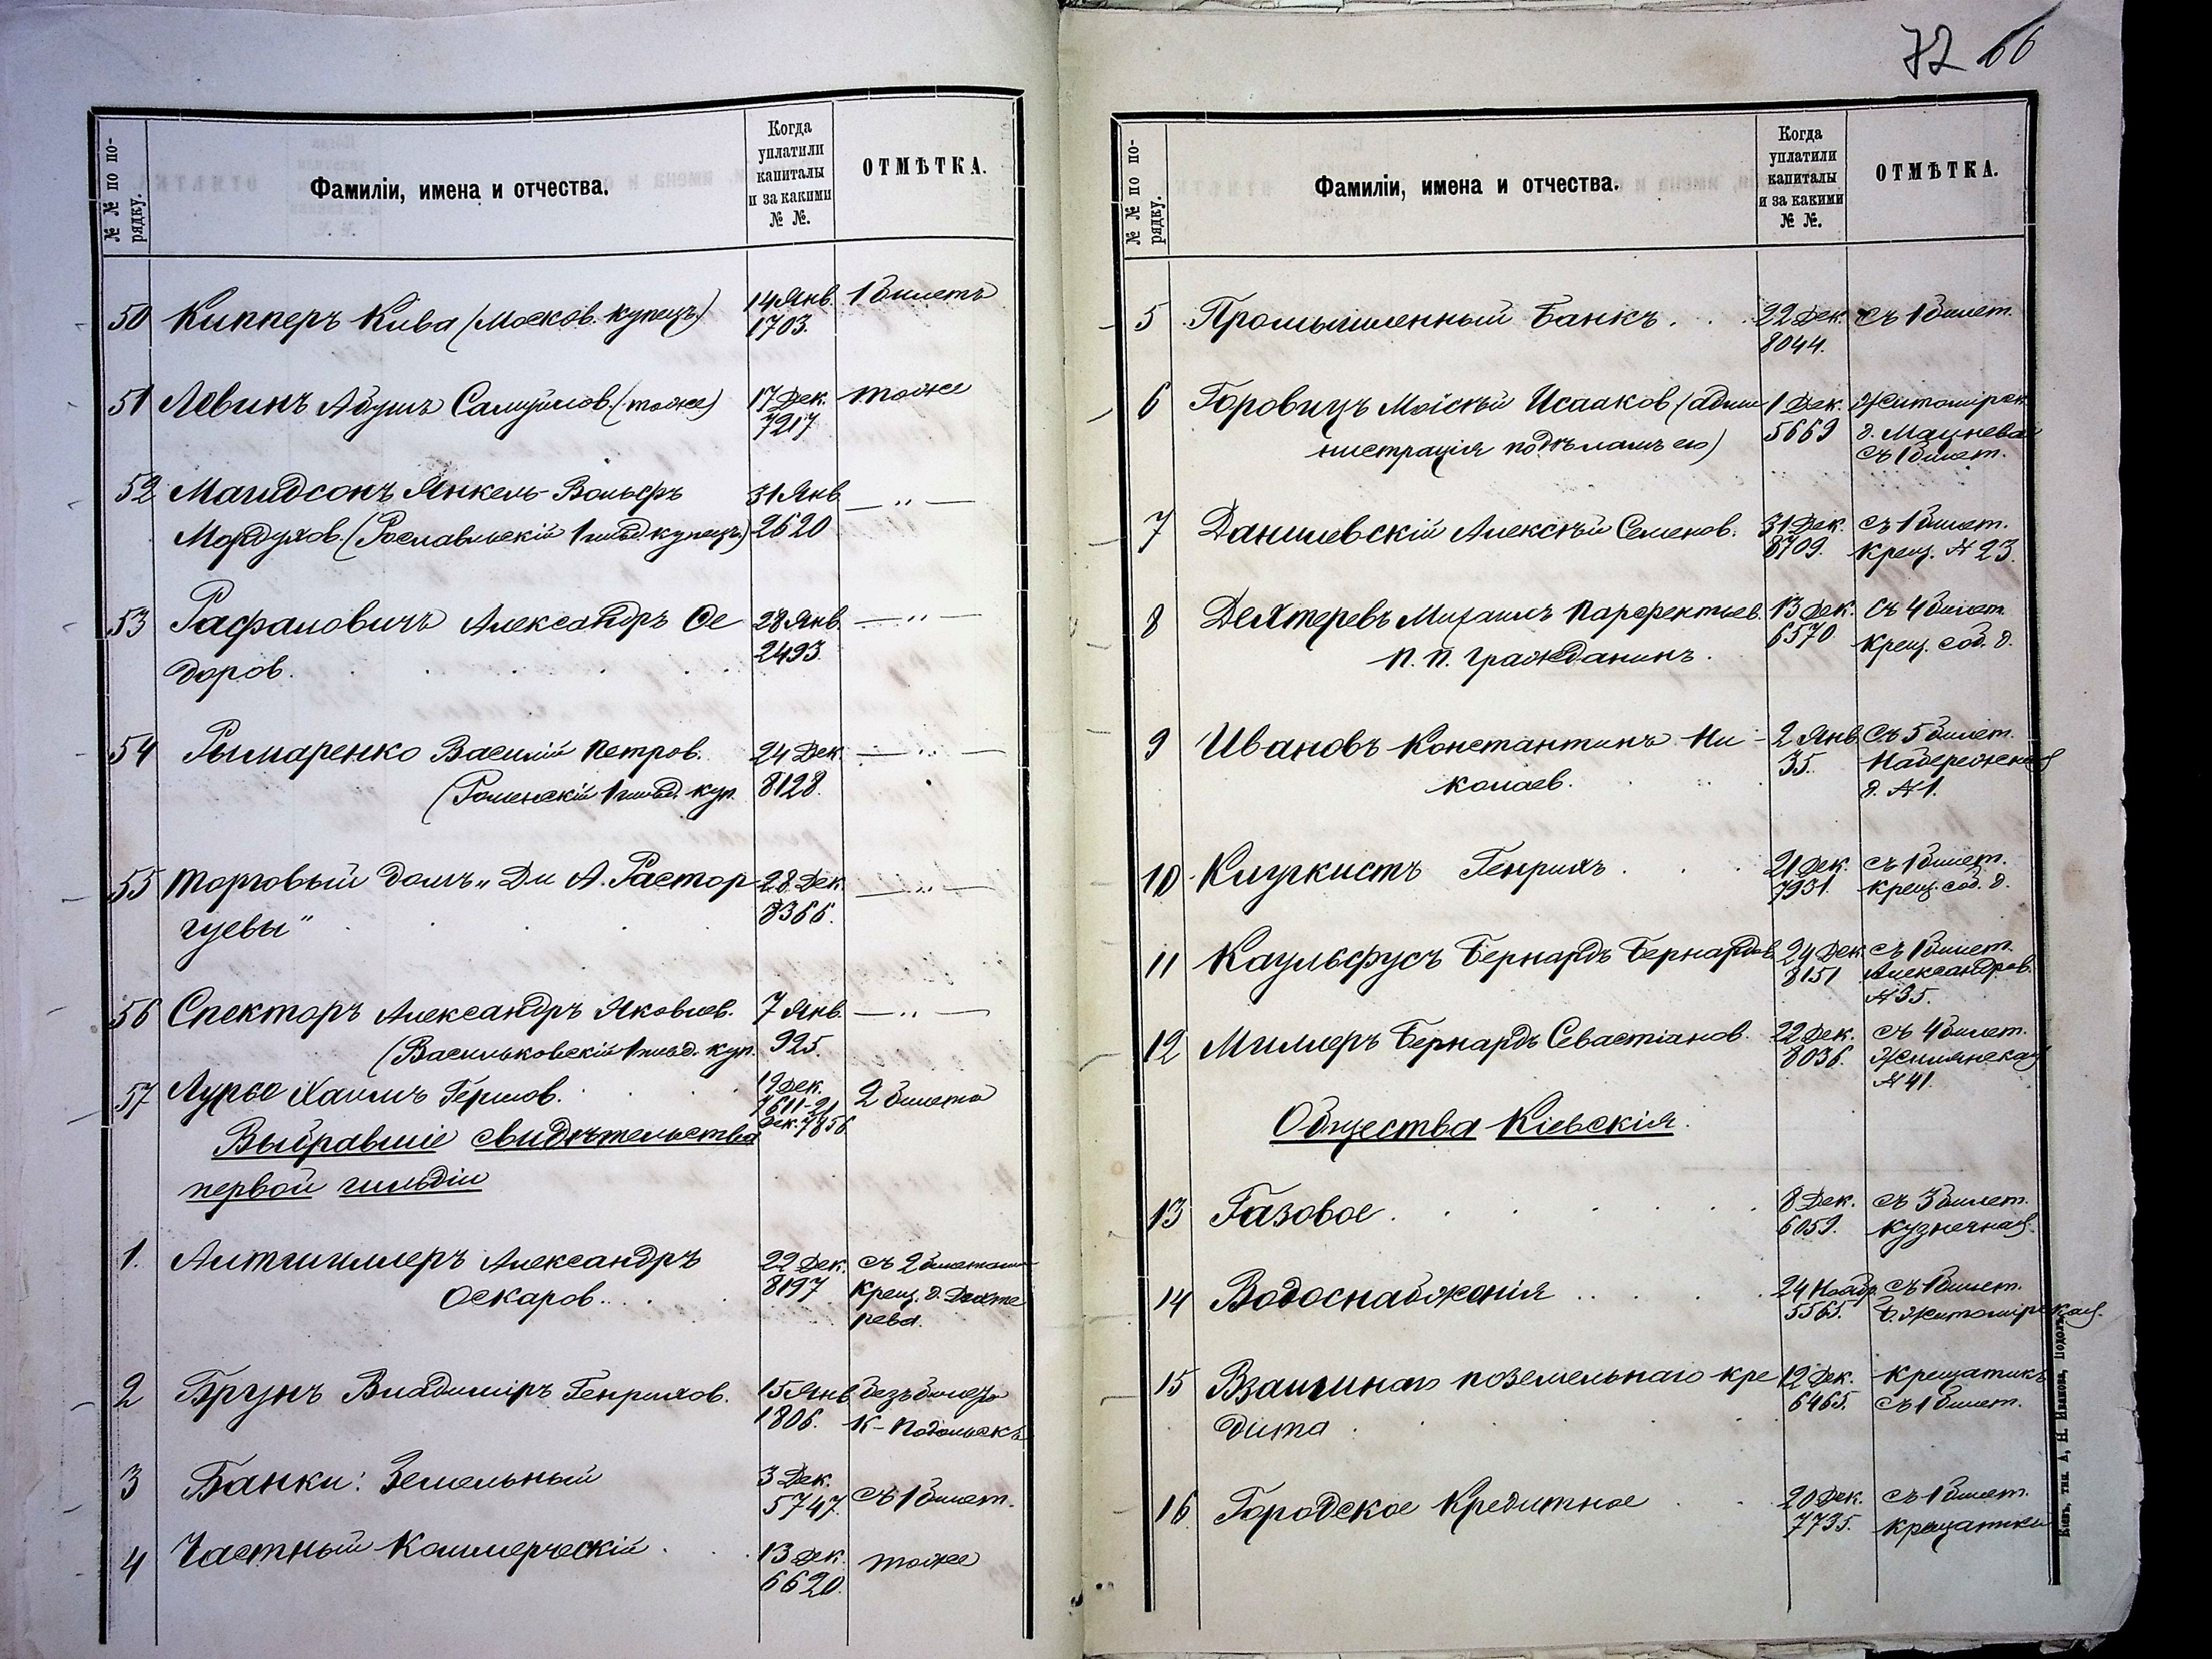 № № по по-
рядку.
Фамиліи, имена и отчества.
Когда
уплатили
капиталы
и за какими
№ №.
ОТМѢТКА.
50 Кипперъ Кива (Москов. купецъ) 14 Янв. 1 билетъ
1703.
51 Левинъ Абушъ Самуйлов. (тоже) 17 Дек. тоже
7217
52 Магидсонъ Янкель-Вольфъ 31 Янв. — „ —
Мордухов. (Рославльскій 1 гильд. купецъ) 2620
53 Рафаловичъ Александръ Ѳе 28 Янв. — „ —
доров. 2493.
54 Рымаренко Василій Петров. 24 Дек. — „ —
(Роменскій 1 гильд. куп. 8128.
55 Торговый домъ „Д и А. Растор 28 Дек. — „ —
гуевы" 8366.
56 Спекторъ Александръ Яковлев. 7 Янв. — „ —
(Васильковскій 1 гильд. куп. 925.
57 Лурье Хаимъ Гершов. 19 Дек. 2 билета
7611-21
Дек. 7856
Выбравшіе свидѣтельства
первой гильдіи
1. Альтшиллеръ Александръ 22 Дек. съ 2 билетами
Оскаров. 8197 Крещ. д. Дехте
рева.
2 Брунъ Владиміръ Генрихов. 15 Янв. безъ билета
1806. К-Подольскъ
3 Банки: Земельный 3 Дек.
5747. съ 1 билет.
4 Частный Коммерческій. 13 Дек. тоже
6620.
72 66
№ № по по-
рядку.
Фамиліи, имена и отчества.
Когда
уплатили
капиталы
и за какими
№ №.
ОТМѢТКА.
5 Промышленный Банкъ. 22 Дек. съ 1 билет.
8044.
6 Горовицъ Моісѣй Исааков. (адми 1 Дек. Житомірск.
нистрація по дѣламъ его) 5669 д.
съ 1 билет.
7 Данилевскій Алексѣй Семенов. 31 Дек. съ 1 билет.
8709. Крещ. № 23.
8 Дехтеревъ Михаилъ Парфентьев. 13 Дек. съ 4 билет.
п. п. гражданинъ. 6570. Крещ. соб. д.
9 Ивановъ Константинъ Ни- 2 Янв. съ 5 билет.
колаев. 35. Набережная
д. № 1.
10 Клугкистъ Генрихъ 21 Дек. съ 1 билет.
7931. Крещ. соб. д.
11 Каульфусъ Бернардъ Бернардов. 24 Дек. съ 1 билет.
8151 Александров.
№ 35.
12 Миллеръ Бернардъ Севастіанов. 22 Дек. съ 4 билет.
8036. Жилянская
№ 41.
Общества Кіевскія.
13 Газовое. 8 Дек. съ 3 билет.
6059. Кузнечная.
14 Водоснабженія 24 Ноябр. съ 1 билет.
5565. Б. Житомірская.
15 Взаимнаго поземельнаго кре 12 Дек. Крещатикъ
дита. 6465. съ 1 билет.
16 Городское Кредитное 20 Дек. съ 1 билет.
7735. Крещатикъ
Кіевъ, тип. А. Н. Иванова, Подолъ,